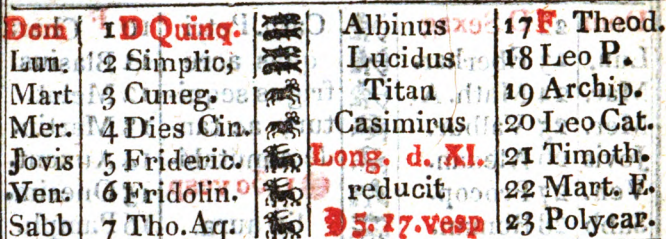 Dom 1 D Quinq. Albinus 17 F. Theod.
Lun. 2 Simplic, Lucidus 18 Leo P.
Mart 3 Cuneg. Titan 19 Archip.
Mer. 4 Dies Cin. Casimirus 20 Leo Cat.
Jovis 5 Frideric. Long. d. XI. 21 Timoth.
Ven. 6 Fridolin. reducit 22 Mart. E.
Sabb 7 Tho. Aq. 5. 17. vesp 23 Polycar.